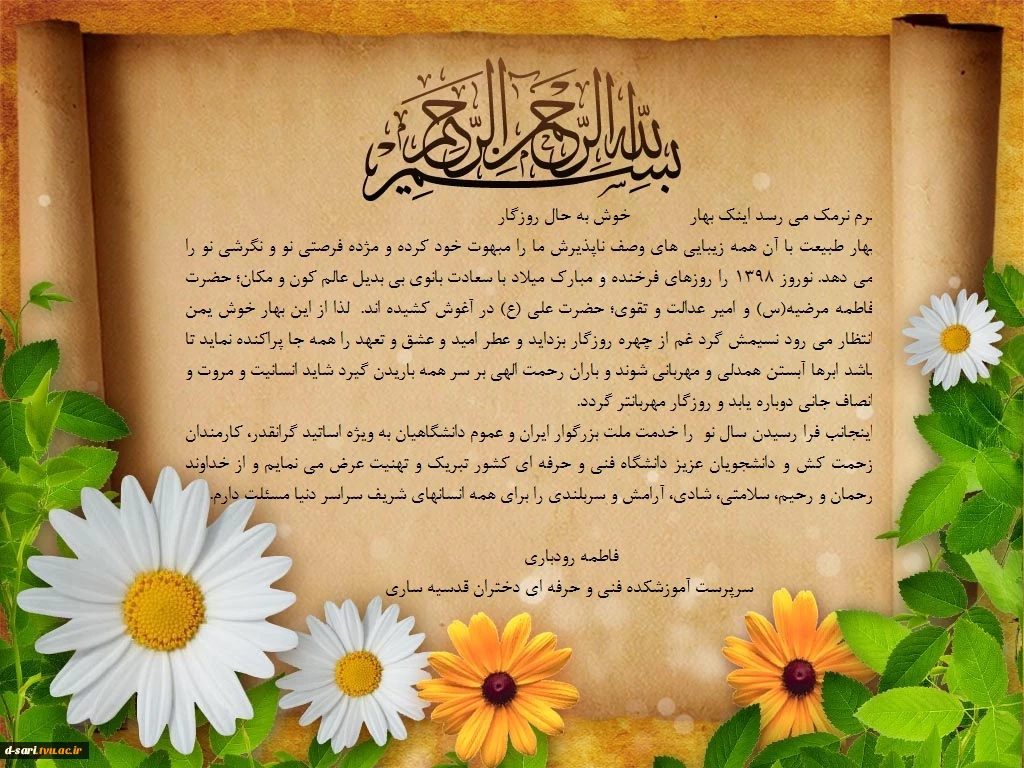 بسم الله الرحمن الرحیم
نرم نرمک می رسد اینک بهار خوش به حال روزگار
بهار طبیعت با آن همه زیبایی های وصف ناپذیرش ما را مبهوت خود کرده و مژده فرصتی نو و نگرشی نو را
می دهد. نوروز ۱۳۹۸ را روزهای فرخنده و مبارک میلاد با سعادت بانوی بی بدیل عالم کون و مکان؛ حضرت
فاطمه مرضیه(س) و امیر عدالت و تقوی؛ حضرت علی (ع) در آغوش کشیده اند. لذا از این بهار خوش یمن
انتظار می رود نسیمش گرد غم از چهره روزگار بزداید و عطر امید و عشق و تعهد را همه جا پراکنده نماید تا
باشد ابرها آبستن همدلی و مهربانی شوند و باران رحمت الهی بر سر همه باریدن گیرد شاید انسانیت و مروت و
انصاف جانی دوباره یابد و روزگار مهربانتر گردد.
اینجانب فرا رسیدن سال نو را خدمت ملت بزرگوار ایران و عموم دانشگاهیان به ویژه اساتید گرانقدر، کارمندان
زحمت کش و دانشجویان عزیز دانشگاه فنی و حرفه ای کشور تبریک و تهنیت عرض می نمایم و از خداوند
رحمان و رحیم، سلامتی، شادی، آرامش و سربلندی را برای همه انسانهای شریف سراسر دنیا مسئلت دارم.
فاطمه رودباری
سرپرست آموزشکده فنی و حرفه ای دختران قدسیه ساری
d-sari.tvu.ac.ir